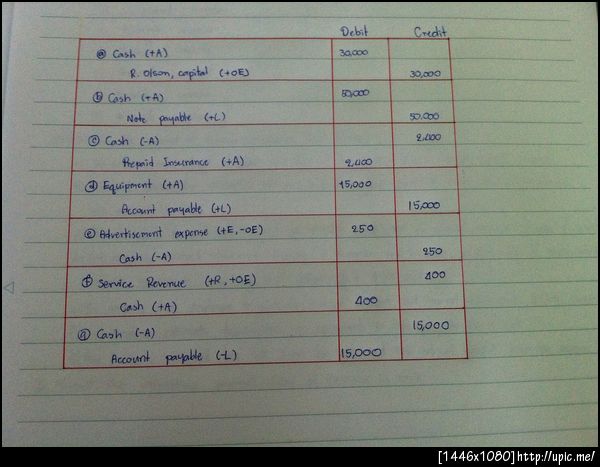 Debit Credit
ⓐ Cash (+A) 30,000
R. Olson, capital (+OE) 30,000
ⓑ Cash (+A) 50,000
Note payable (+L) 50.000
ⓒ Cash (-A) 2,400
Prepaid Insurance (+A) 2,400
ⓓ Equipment (+A) 15,000
Account payable (+L) 15,000
ⓔ Advertisement expense (+E,-OE) 250
Cash (-A) 250
ⓕ Service Revenue (+R, +OE) 400
Cash (+A) 400
ⓖ Cash (-A) 15,000
Account payable (-L) 15,000
[1446x1080]http://upic.me/